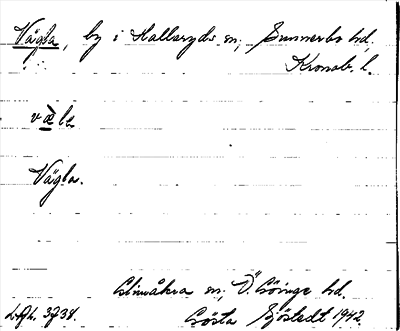 Vägla, by i Hallaryds sn, Sunnerbo hd,
Kronob. l.
Vägla.
Glimåkra sn, Ö. Göinge hd.
Gösta Sjöstedt 1942.